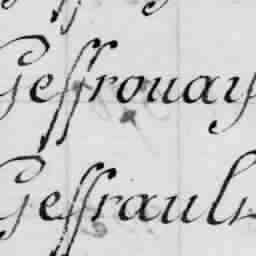 Geffrouay
Geffrault